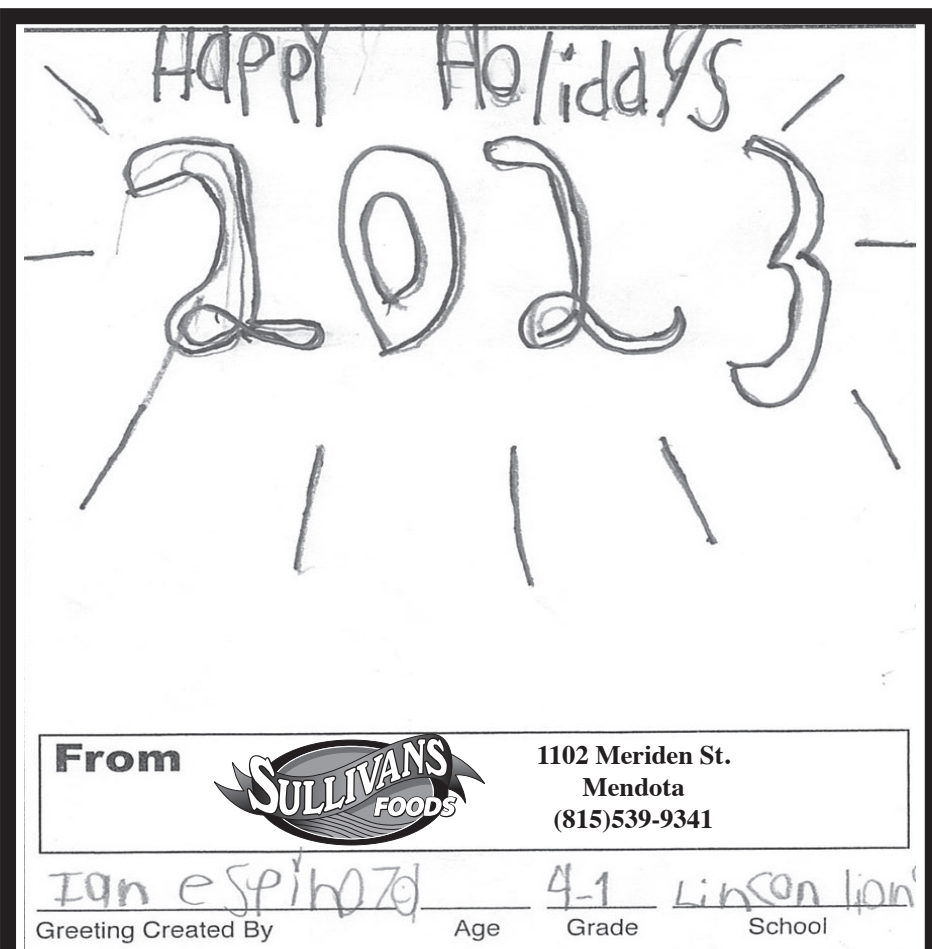 Happy Holidays
2023
From
SULLIVANS
FOODS
1102 Meriden St.
Mendota
(815)539-9341
Ian espinoza 4-1 Lincon lion
Greeting Created By Age Grade School